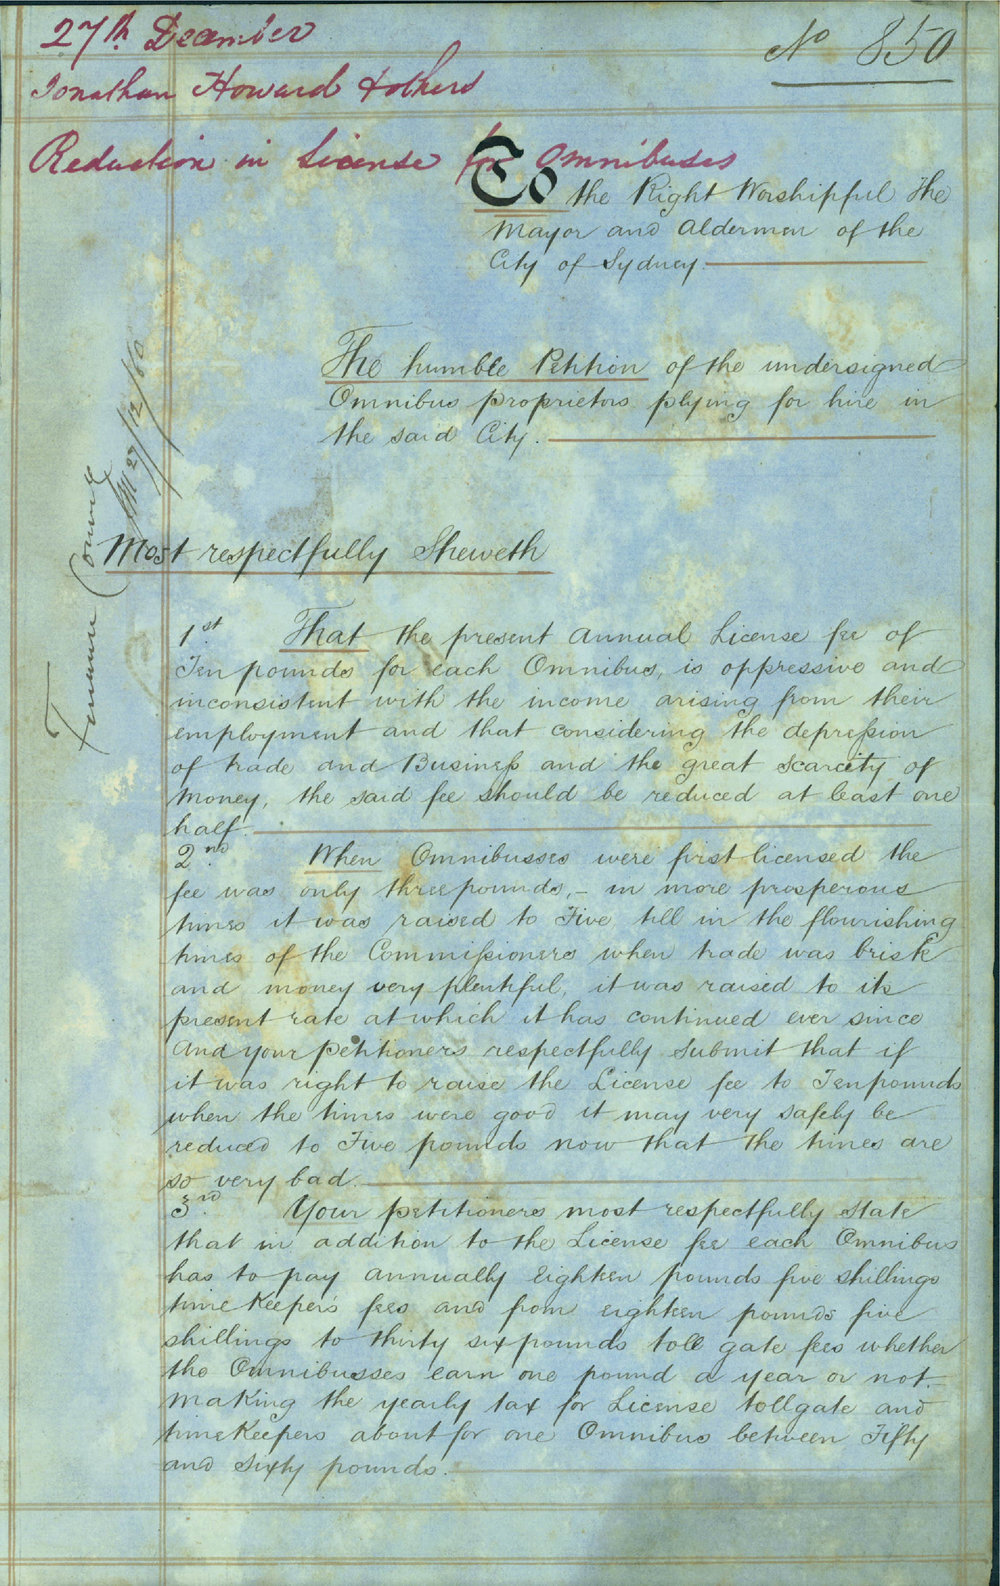 27th December
No 850
Jonathan Howard & others
Reduction in License for Omnibuses
To the Right Worshipful The
Mayor and Aldermen of the
City of Sydney.
The humble Petition of the undersigned
Omnibus proprietors plying for hire in
the said City.
Finance Committe
27/12/60
Most respectfully Sheweth
1st. That the present annual License fee of
Ten pounds for each Omnibus, is oppressive and
inconsistent with the income arising from their
employment and that considering the depression
of trade and Business and the great scarcity of
Money, the said fee should be reduced at least one
half.
2nd. When Omnibusses were first licensed the
fee was only three pounds, – in more prosperous
times it was raised to Five till in the flourishing
times of the Commissioners when trade was brisk
and money very plentiful, it was raised to its
present rate at which it has continued ever since
And your petitioners respectfully submit that if
it was right to raise the License fee to Ten pounds
when the times were good it may very safely be
reduced to Five pounds now that the times are
so very bad.
3rd. Your petitioners most respectfully state
that in addition to the License fee each Omnibus
has to pay annually Eighteen pounds five shillings
time Keepers fees and from eighteen pounds five
shillings to thirty six pounds toll gate fees whether
the Omnibusses earn one pound a year or not.
Making the yearly tax for License tollgate and
time Keepers about for one Omnibus between Fifty
and Sixty pounds.